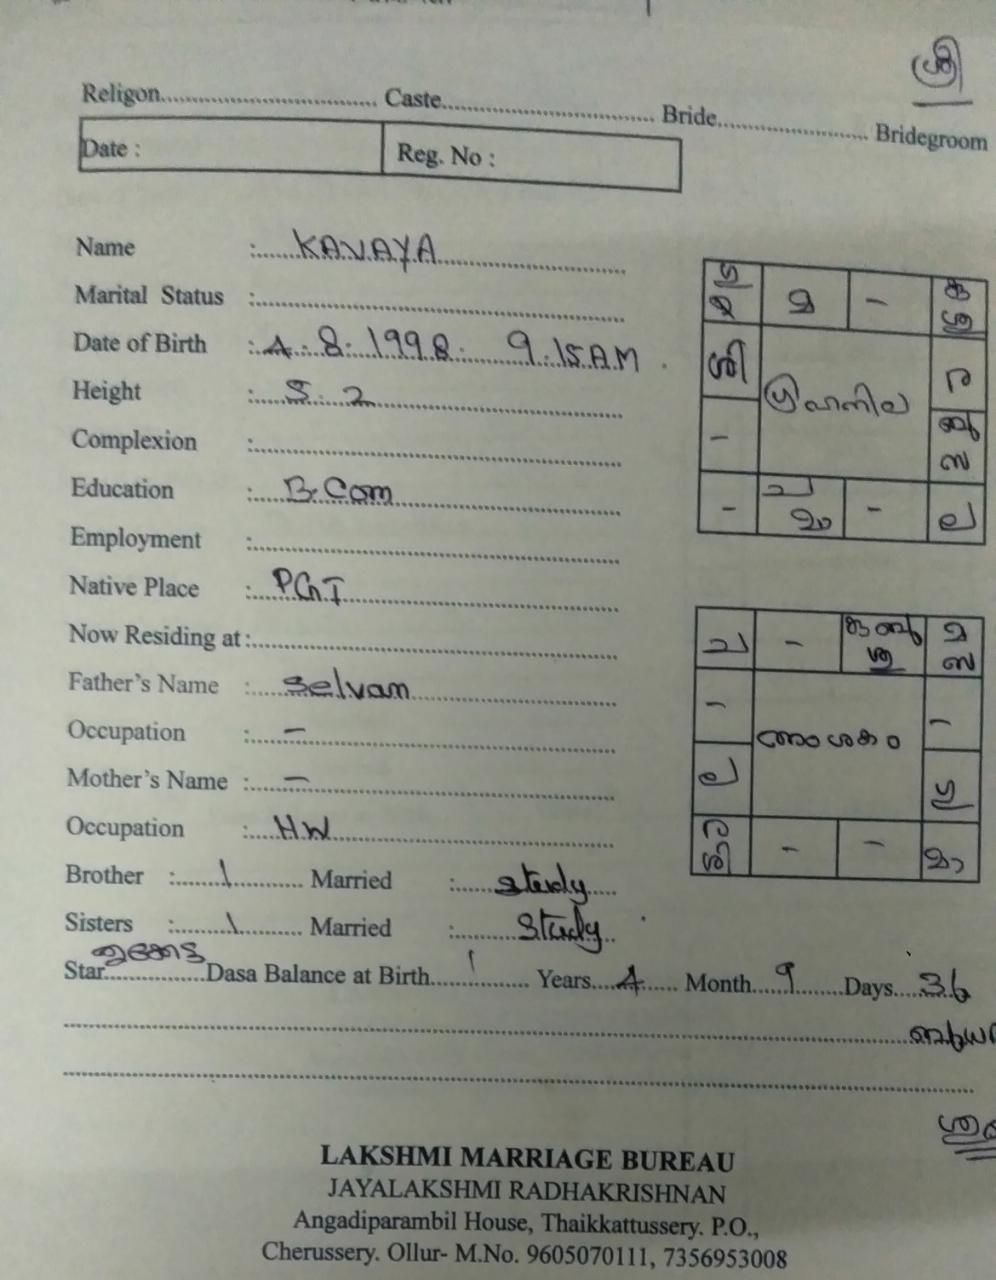 ശ്രീ
Religon.............................. Caste.............................. Bride..................... Bridegroom
Date :
Reg. No :
Name :......KAVAYA
Marital Status :
Date of Birth :..4..8..1998. 9.15 A.M
Height :......5.2
Complexion :
Education :......B.Com
Employment :
Native Place :......PGT
Now Residing at :
Father's Name :......Selvam
Occupation :......–
Mother's Name :......–
Occupation :......HW
Brother :......1...... Married :......study
Sisters :......1...... Married :......Study
Star......തൃക്കേട്ട......Dasa Balance at Birth...... Years....4.... Month....9....Days....26
ഗ്രഹനില
മ
–
ര
–
–
–
ല
അംശകം
–
–
–
ല
–
–
LAKSHMI MARRIAGE BUREAU
JAYALAKSHMI RADHAKRISHNAN
Angadiparambil House, Thaikkattussery. P.O.,
Cherussery. Ollur- M.No. 9605070111, 7356953008